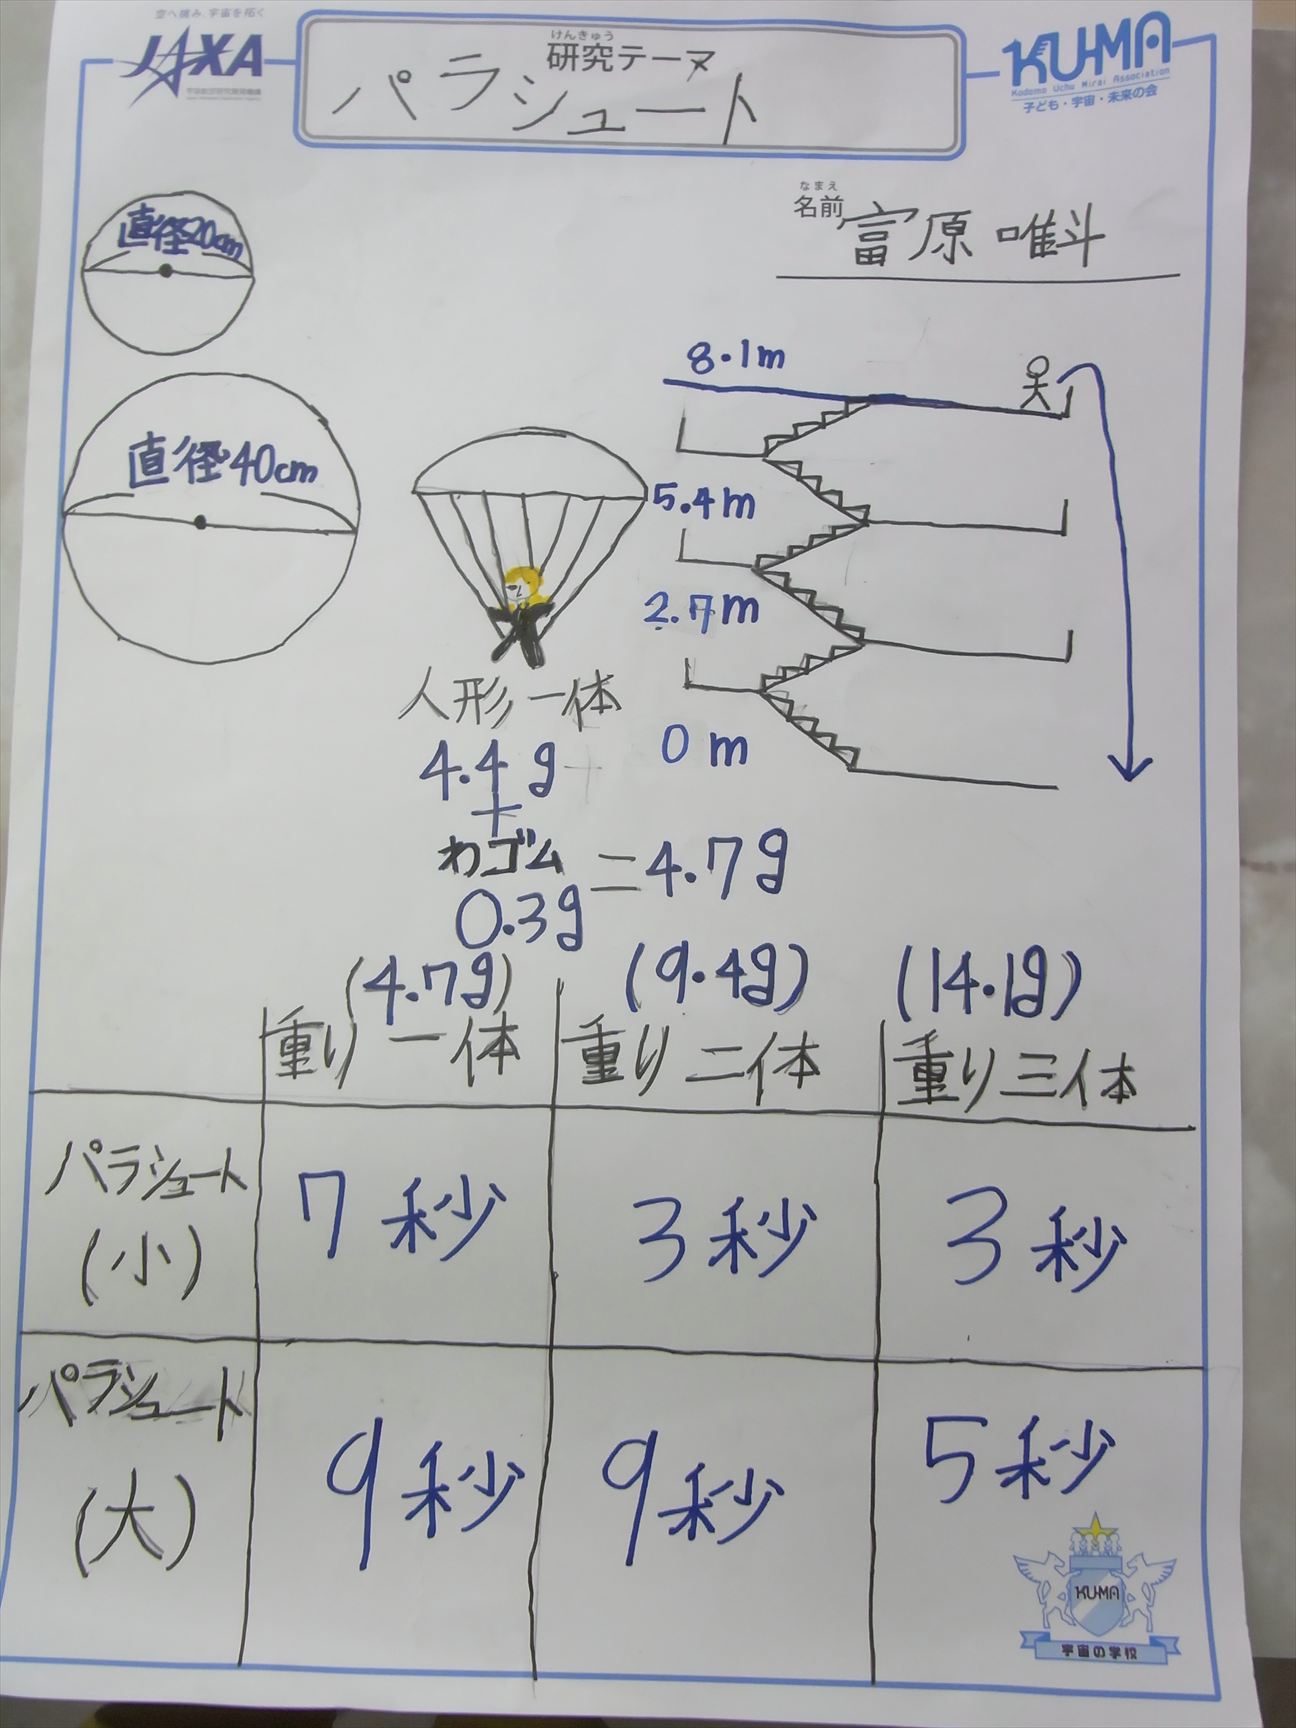 空へ挑み、宇宙を拓く
JAXA
けんきゅう
研究テーマ
パラシュート
KU-MA
Kodomo Uchu Mirai Association
子ども・宇宙・未来の会
なまえ
名前
富原 唯斗
直径20cm
直径40cm
8.1m
5.4m
2.7m
0m
人形一体
4.4g
+
わゴム
0.3g
=4.7g
(4.7g)
(9.4g)
(14.1g)
重り一体
重り二体
重り三体
パラシュート
(小)
7秒
3秒
3秒
パラシュート
(大)
9秒
9秒
5秒
KU-MA
宇宙の学校